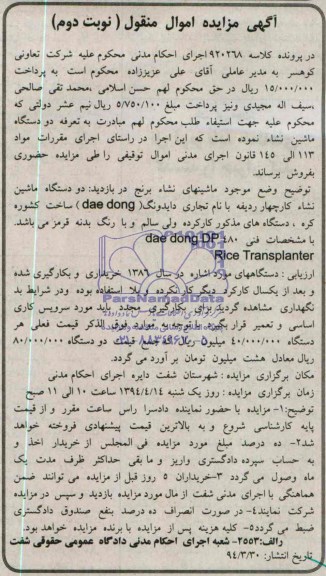 آگهی مزایده اموال منقول ( نوبت دوم)
در پرونده کلاسه ۹۲۰۲۶۸ اجرای احکام مدنی محکوم علیه شرکت تعاونی
کوهسر به مدیر عاملی آقای علی عزیززاده محکوم است به پرداخت
۱۵/۰۰۰/۰۰۰ ریال در حق محکوم لهم حسن اسلامی ،محمد تقی صالحی
،سیف اله مجیدی ونیز پرداخت مبلغ ۵/۷۵۰/۱۰۰ ریال نیم عشر دولتی که
محکوم علیه جهت استیفاء طلب محکوم لهم مبادرت به تعرفه دو دستگاه
ماشین نشاء نموده است که این اجرا در راستای اجرای مقررات مواد
۱۱۳ الی ۱۴۵ قانون اجرای مدنی اموال توقیفی را طی مزایده حضوری
بفروش برساند.
توضیح وضع موجود ماشینهای نشاء برنج در بازدید: دو دستگاه ماشین
نشاء کارچهار ردیفه با نام تجاری دایدونگ( dae dong ) ساخت کشوره
کره ، دستگاه های مذکور کارکرده ولی سالم و با رنگ بدنه قرمز می باشد.
با مشخصات فنی dae dong DP۴۸۰
Rice Transplanter
ارزیابی : دستگاههای مورد اشاره در سال ۱۳۸۶ خریداری و بکارگیری شده
و بعد از یکسال کارکرد دیگر کار نکرده و بلا استفاده بوده ودر شرایط بد
نگهداری مشاهده گردید برای بکارگیری مجدد باید مورد سرویس کاری
اساسی و تعمیر قرار بگیرد با توجه به موارد فوق الذکر قیمت فعلی هر
دستگاه ۴۰/۰۰۰/۰۰۰ میلیون ریال که جمع قیمت دو دستگاه ۸۰/۰۰۰/۰۰۰
ریال معادل هشت میلیون تومان بر آورد می گردد.
مکان برگزاری مزایده : شهرستان شفت دایره اجرای احکام مدنی
زمان برگزاری مزایده : روز یک شنبه ۱۳۹۴/۴/۱۴ ساعت ۱۰ الی ۱۱ صبح
توضیح:۱- مزایده با حضور نماینده دادسرا راس ساعت مقرر و از قیمت
پایه کارشناسی شروع و به بالاترین قیمت پیشنهادی فروخته خواهد
شد۲- ده درصد مبلغ مورد مزایده فی المجلس از خریدار اخذ و
به حساب سپرده دادگستری واریز و ما بقی حداکثر ظرف مدت یک
ماه وصول می گردد ۳-خریداران ۵ روز قبل از مزایده می توانند ضمن
هماهنگی با اجرای مدنی شفت از مال مورد مزایده بازدید و سپس در مزایده
شرکت نمایند۴- در صورت انصراف ده درصد بنفع صندوق دادگستری
ضبط می گردد۵- کلیه هزینه پس از مزایده با برنده مزایده خواهد بود.
رالف:۲۵۵۳- شعبه اجرای احکام مدنی دادگاه عمومی حقوقی شفت
تاریخ انتشار: ۹۴/۳/۳۰
ParsNamadData